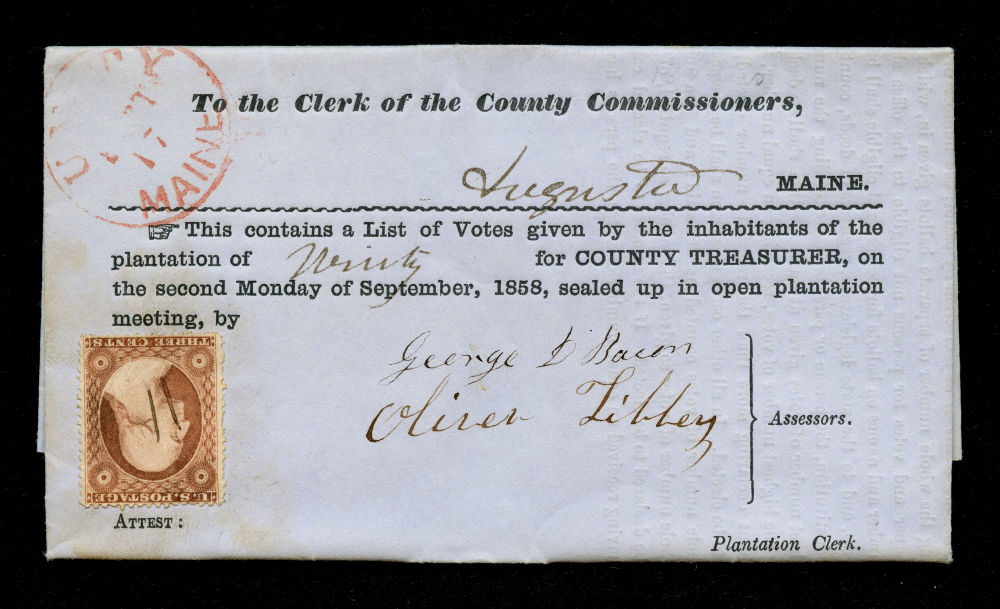 To the Clerk of the County Commissioners,
MAINE
Augusta MAINE.
☞ This contains a List of Votes given by the inhabitants of the
plantation of Unity for COUNTY TREASURER, on
the second Monday of September, 1858, sealed up in open plantation
meeting, by
THREE CENTS
U.S. POSTAGE
George D Bacon
Oliver Libbey
Assessors.
ATTEST:
Plantation Clerk.